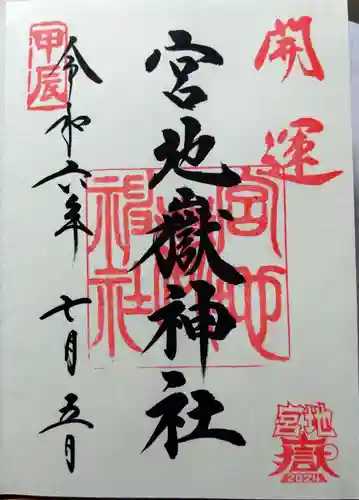 開運
宮地嶽神社
令和六年 七月 五日
甲辰
宮地嶽神社
宮地
嶽
2024